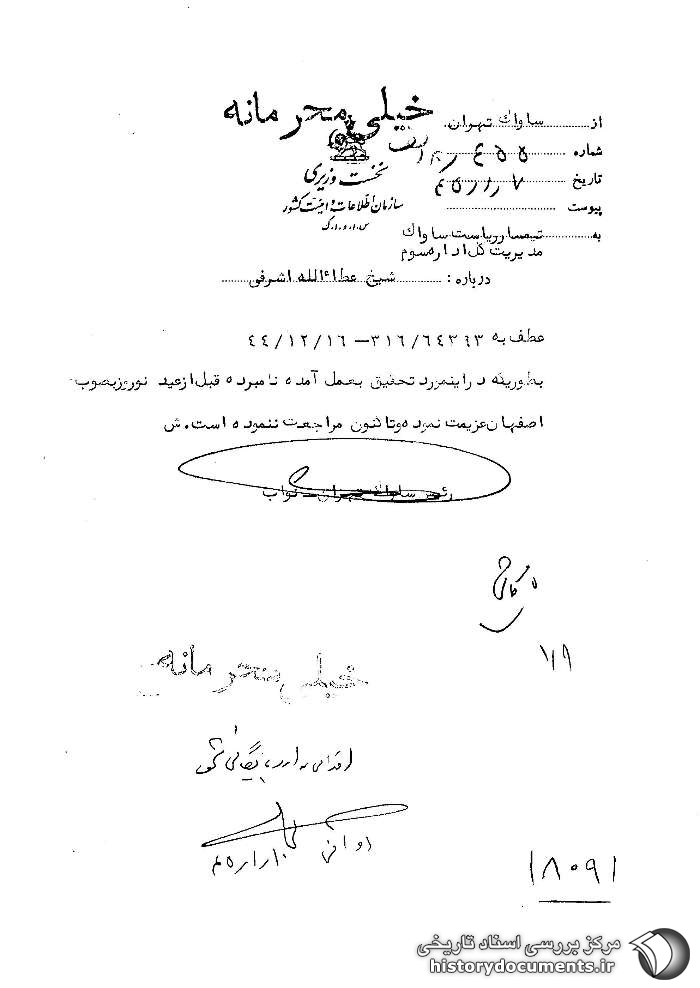 خیلی محرمانه
از ساواک تهران
شماره
تاریخ ۴۵/۱/۷
پیوست
نخست وزیری
سازمان اطلاعات و امنیت کشور
س.ا.و.ا.ک
به تیمسار ریاست ساواک
مدیریت کل اداره سوم
درباره : شیخ عطاءالله اشرفی
عطف به ۳۱۶/۶۴۳۹۳ – ۴۴/۱۲/۱۶
بطوریکه در اینمورد تحقیق بعمل آمده نامبرده قبل از عید نوروز بصوب
اصفهان عزیمت نموده و تاکنون مراجعت ننموده است. ش
رئیس ساواک تهران – نواب
۱/۹
خیلی محرمانه
اقدامی ندارد، بایگانی شود
۱۸۰۹۱
مرکز بررسی اسناد تاریخی
historydocuments.ir